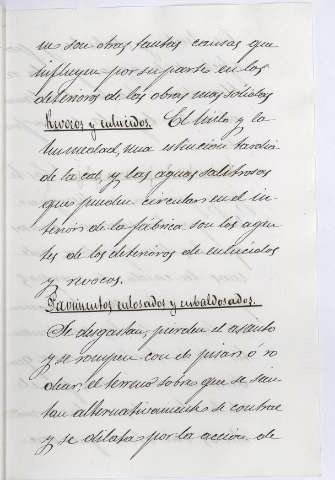 ne son otras tantas causas que
influyen por su parte en los
deterioros de las obras mas sólidas
Revocos y enlucidos. El hielo y la
humedad, una estincion tardia
de la cal, y las aguas salitrosas
que pueden circular en el in-
terior de la fábrica son los agen
tes de los deterioros de enlucidos
y revocos.
Pavimentos enlosados y embaldosados.
Se desgastan, pierden el asiento
y se rompen con el pisar ó ro
dear, el terreno sobre que se sien
tan alternativamente se contrae
y se dilata por la accion de